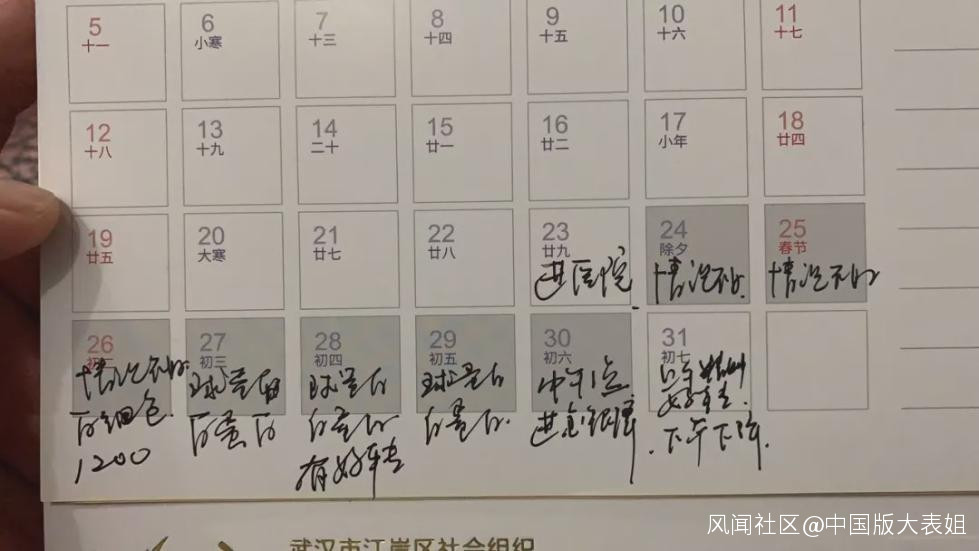 5 6 7 8 9 10 11
十一 小寒 十三 十四 十五 十六 十七
12 13 14 15 16 17 18
十八 十九 二十 廿一 廿二 小年 廿四
19 20 21 22 23 24 25
廿五 大寒 廿七 廿八 廿九 除夕 春节
进医院 情况不好 情况不好
26 27 28 29 30 31
初二 初三 初四 初五 初六 初七
情况不好 球蛋白 球蛋白 球蛋白 中午1点
白细包 白蛋白 白蛋白 白蛋白 进金银潭 好转
1200 有好转 下午下降
武汉市江岸区社会组织
风闻社区@中国版大表姐